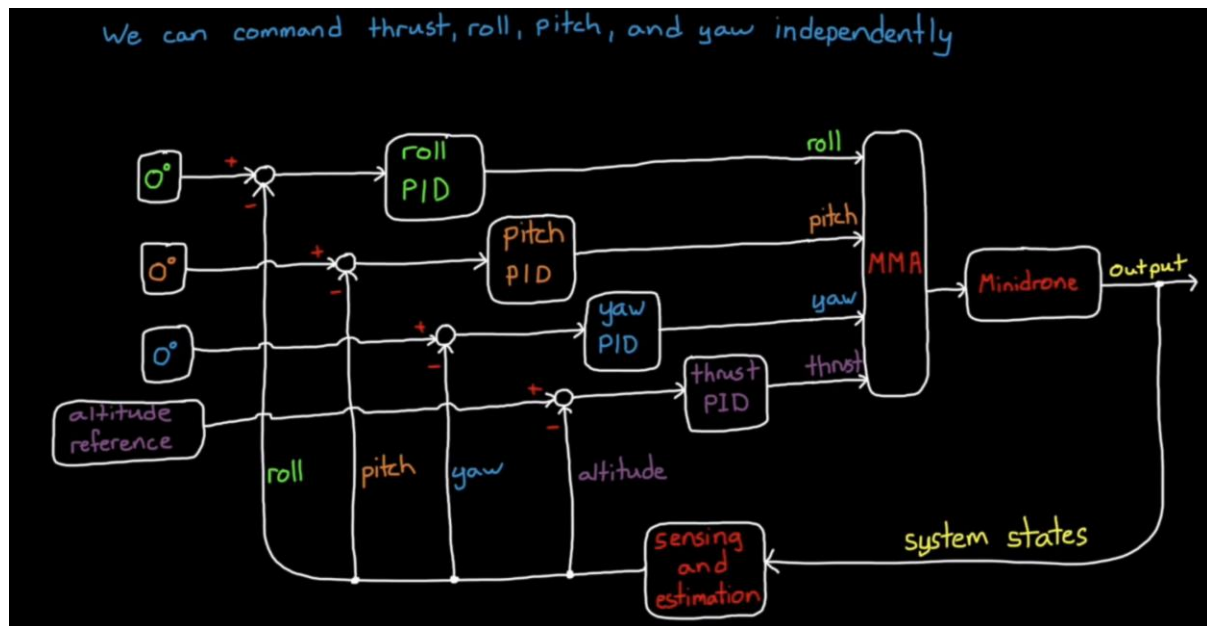 We can command thrust, roll, pitch, and yaw independently
0°
+
-
roll
PID
roll
0°
+
-
pitch
PID
pitch
0°
+
-
yaw
PID
yaw
altitude
reference
+
-
thrust
PID
thrust
MMA
Minidrone
output
roll
pitch
yaw
altitude
sensing
and
estimation
system states